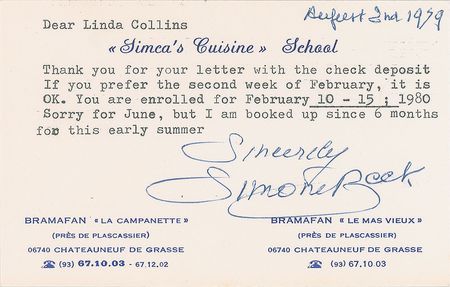 Dear Linda Collins
August 2nd 1979
« Simca's Cuisine » School
Thank you for your letter with the check deposit
If you prefer the second week of February, it is
OK. You are enrolled for February 10 - 15 ; 1980
Sorry for June, but I am booked up since 6 months
for this early summer
Sincerely
Simone Beck
BRAMAFAN « LA CAMPANETTE »
(PRÈS DE PLASCASSIER)
06740 CHATEAUNEUF DE GRASSE
☎ (93) 67.10.03 - 67.12.02
BRAMAFAN « LE MAS VIEUX »
(PRÈS DE PLASCASSIER)
06740 CHATEAUNEUF DE GRASSE
☎ (93) 67.10.03